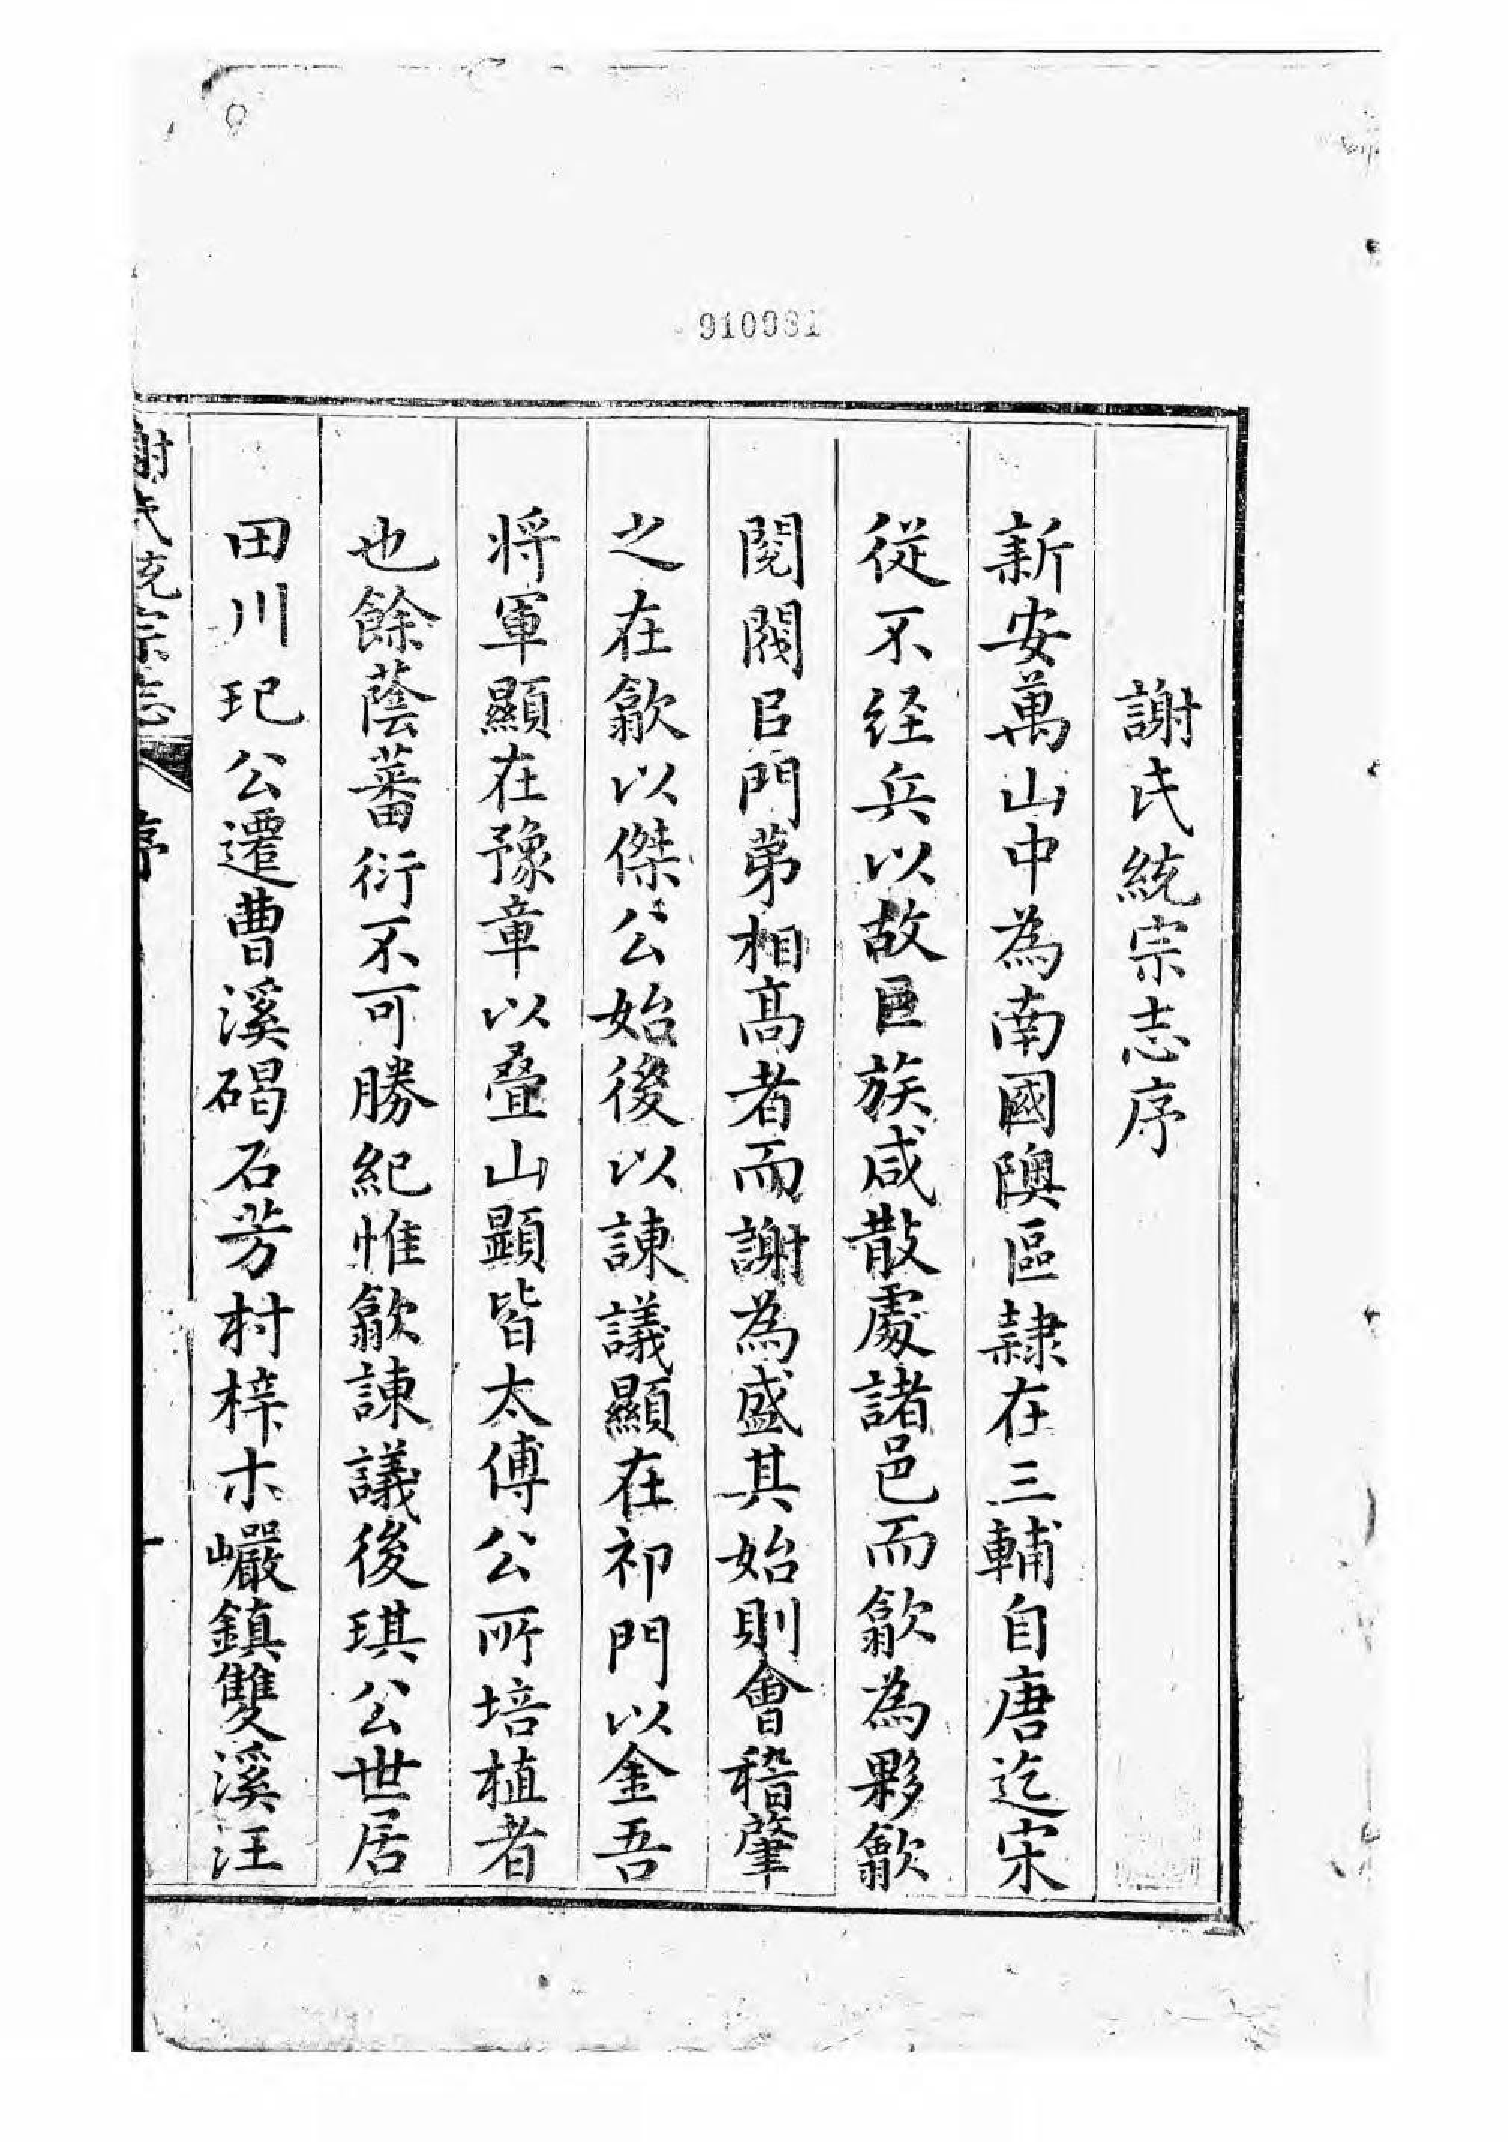 910081
謝氏統宗志序
新安萬山中為南國隩區隷在三輔自唐迄宋
從不经兵以故巨族咸散處諸邑而歙為夥歙
閱閥㠯門苐相髙者而謝為盛其始則會稽肇
之在歙以傑公始後以諫議顯在祁門以金吾
将軍顯在豫章以疊山顕皆太傅公所培植者
也餘蔭蕃衍不可勝紀惟歙諫議後琪公世居
田川玘公遷曹溪碣石芳村梓木巗鎮雙溪汪
謝氏統宗志 序